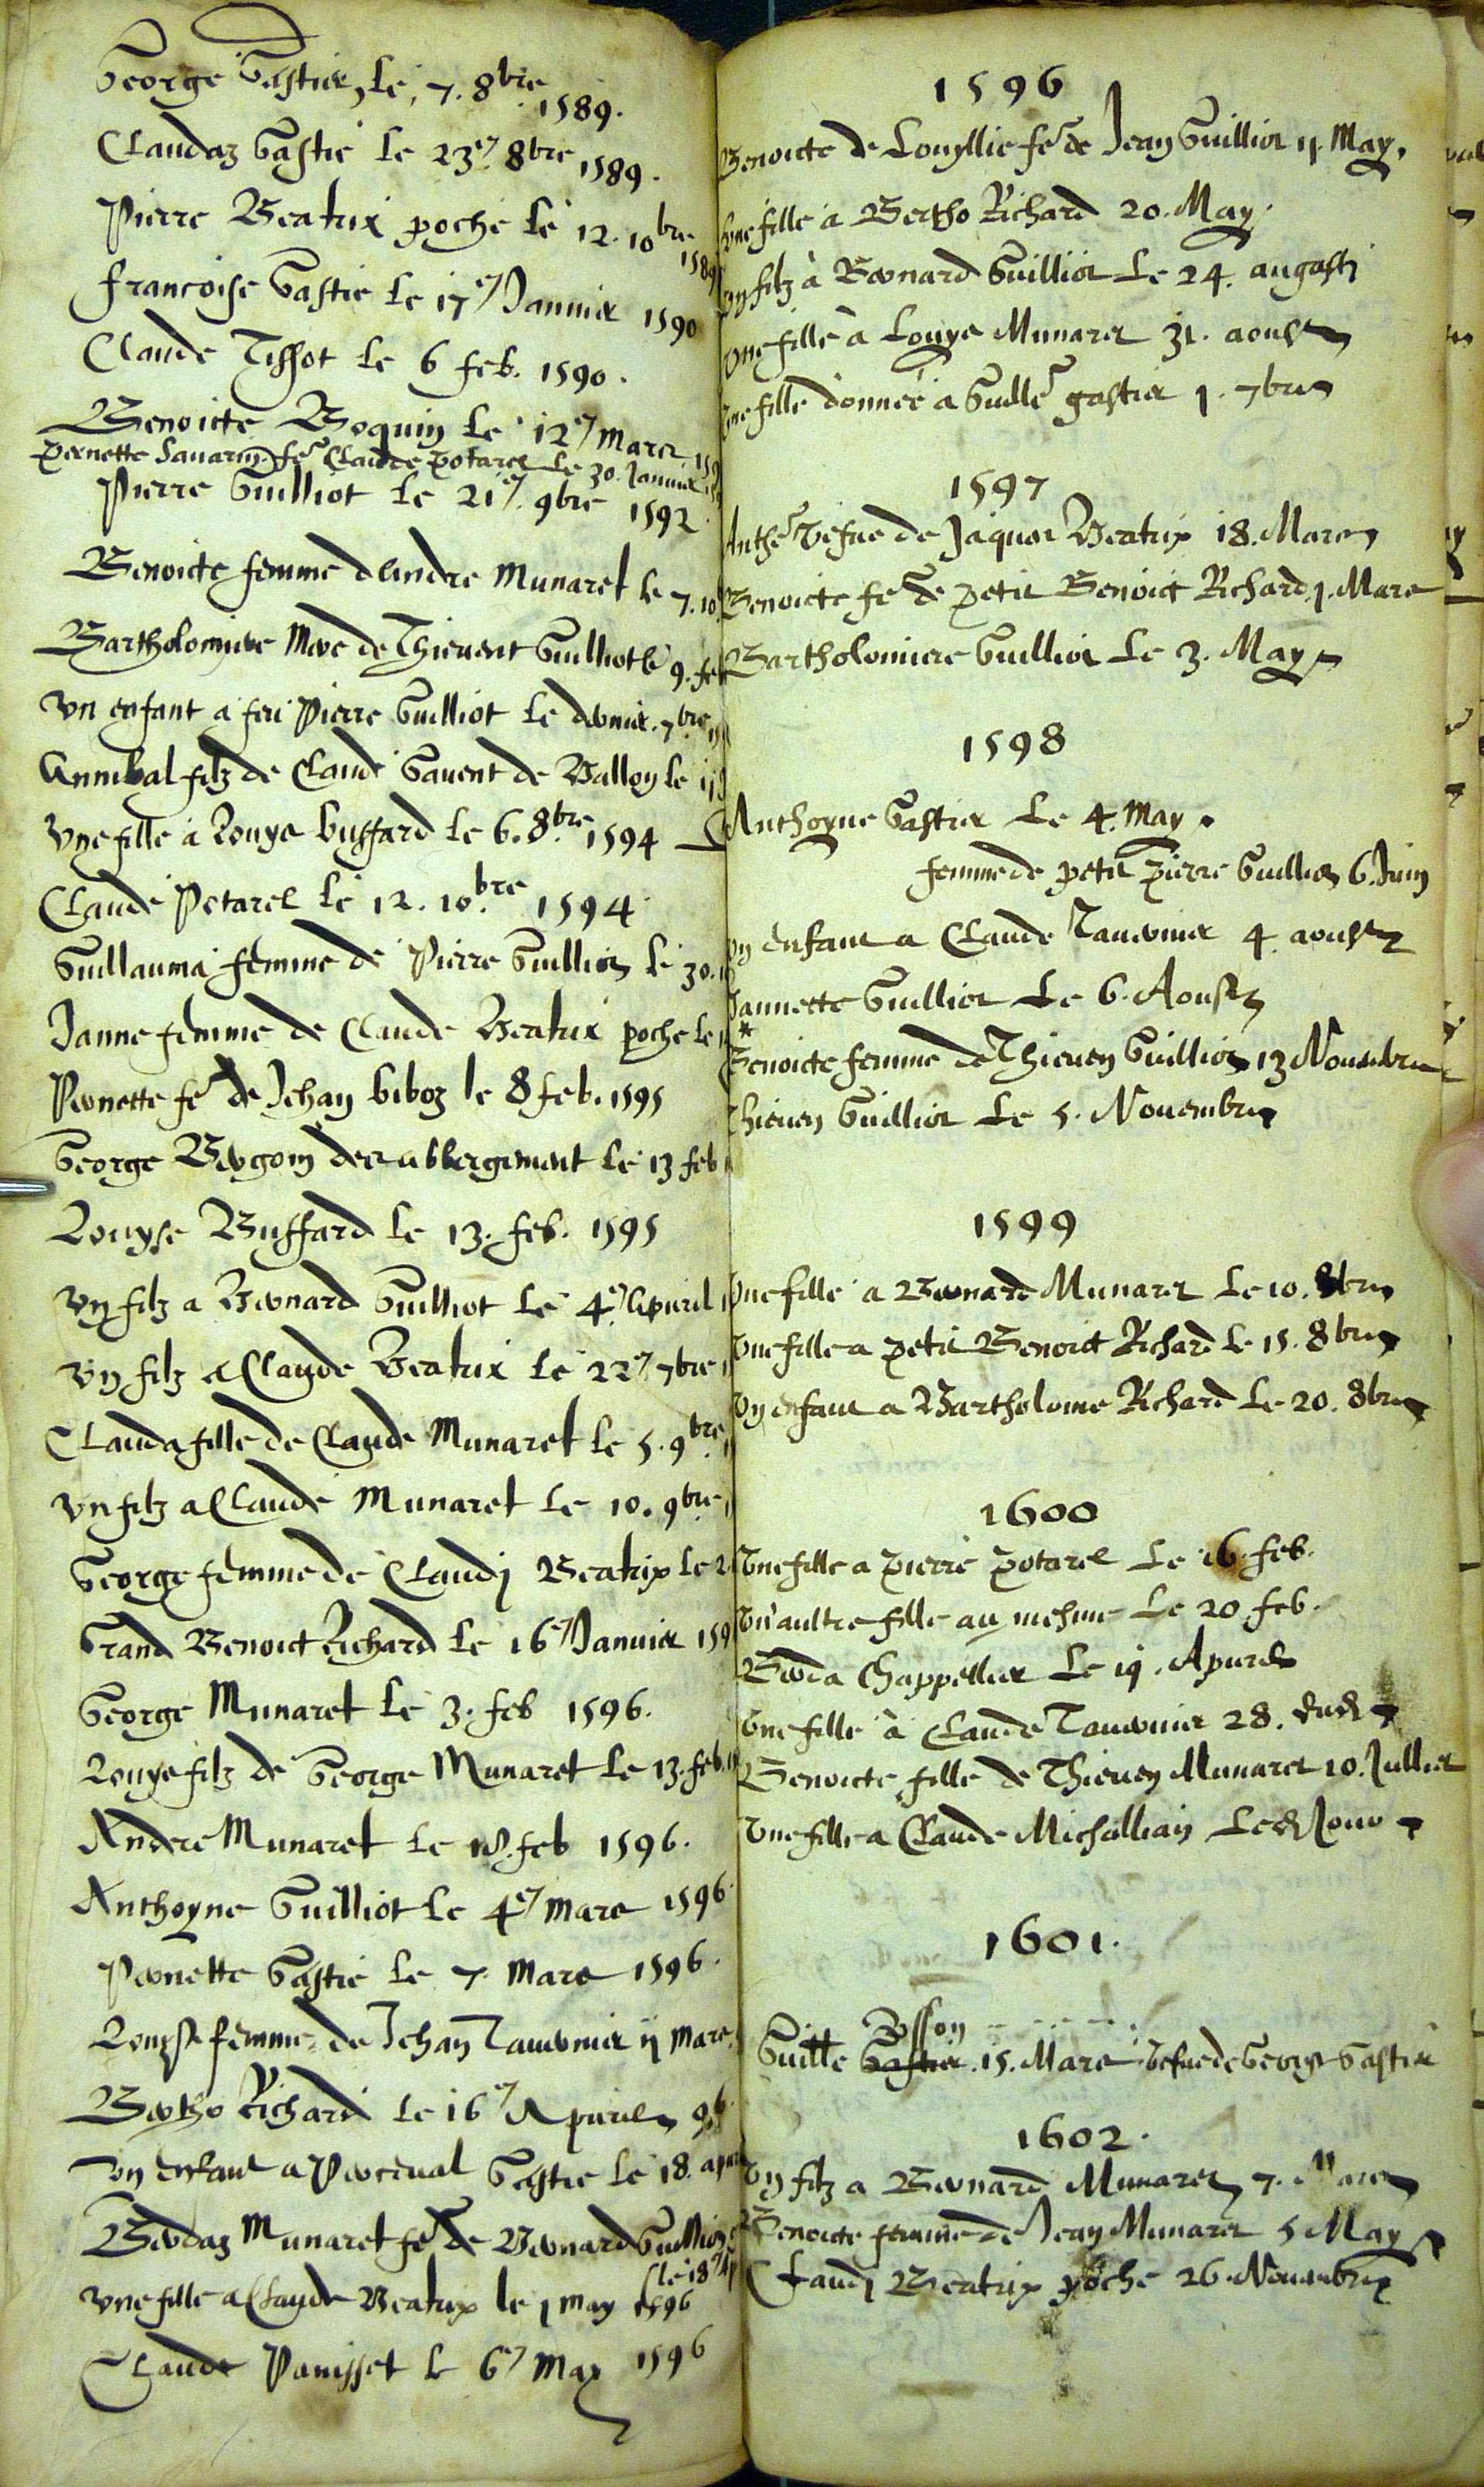 George Gastier, le, 7. 8bre 1589.
Claudaz Gastie le 23e 8bre 1589.
Pierre Beatrix poche le 12. 10bre 1589
francoise Gastie le 17e Januier 1590
Claude Tissot le 6 feb. 1590.
Benoicte Boquin le 12e Marcz 159
Pernette Sauarin fe Claude Potarel le 30. Januier
Pierre Guilliot le 21e. 9bre 1592.
Benoicte femme dAndre Munaret le 7. 10
Bartholomiere Mere de Thieuent Guilliot le 9. feb
Vn enfant a feu Pierre Guilliot le dernier. 7bre
Annibal filz de Claude Gauent de Vallon le
Vne fille a Louys buffard le 6. 8bre 1594
Claude Potarel le 12. 10bre 1594.
Guillauma femme de Pierre Guilliot le 30.
Janne femme de Claude Beatrix poche le
Pernette fe de Jehan biboz le 8 feb. 1595
George Bergoin des abbergement le 13 feb
Louyse Buffard le 13. feb. 1595
Vn filz a Bernard Guilliot le 4e Apuril
Vn filz a Claude Beatrix le 22e 7bre
Clauda fille de Claude Munaret le 5. 9bre
Vn filz a Claude Munaret le 10. 9bre
George femme de Claudj Beatrix le 2
Grand Benoict Richard le 16e Januier 159
George Munaret le 3. feb 1596.
Louys filz de George Munaret le 13. feb.
Andre Munaret le 18. feb 1596.
Anthoyne Guilliot le 4e Mars 1596.
Pernette Gastie le 7. Mars 1596.
Louyse femme de Jehan Tauernier 11 Mars
Bertho Richard le 16e Apuril 96
Vn enfant a Perceual Gastie le 18. apur
Berdaz Munaret fe de Bernard Guilliot
le 18 Ap
Vne fille a Claude Beatrix le 1 may 1596
Claude Panisset le 6e May 1596
1596
Benoicte de Louyllie fe de Jean Guilliot 11 May.
Vne fille a Bertho Richard 20. May.
Vn filz à Bernard Guilliot Le 24. augusti
Vne fille à Louys Munaret 31. aoust
Vne fille donnée a Guille gastier 1. 7bre
1597
Anthe Vefue de Jaques Beatrix 18. Mars
Benoicte fe de petit Benoict Richard 1. Mars
Bartholomiere Guilliot Le 3. May
1598
Anthoyne Gastier Le 4. May.
femme de petit Pierre Guilliot 6. Juin
Vn enfant a Claude Tauernier 4. aoust
Jannette Guilliot Le 6. Aoust
* Benoicte femme de Thieuen Guilliot 13 Nouembre
Thieuen Guilliot Le 5. Nouembre
1599
Vne fille a Bernard Munaret Le 10. 8bre
Vne fille a petit Benoict Richard Le 15. 8bre
Vn enfant a Bartholome Richard Le 20. 8bre
1600
Vne fille a Pierre Potarel Le 16. feb.
Vn'aultre fille au mesme Le 20 feb.
Berda Chappellier Le 19. Apuril
Vne fille à Claude Tauernier 28.
Benoicte fille de Thieuen Munaret 10. Juillet
Vne fille a Claude Michallian Le
1601.
Bosson
Guille Gastier. 15. Mars Vefue de George Gastier
1602.
Vn filz a Bernard Munaret 7. Mars
Benoicte femme de Jean Munaret 5 May
Claudj Beatrix poche 26. Nouembre